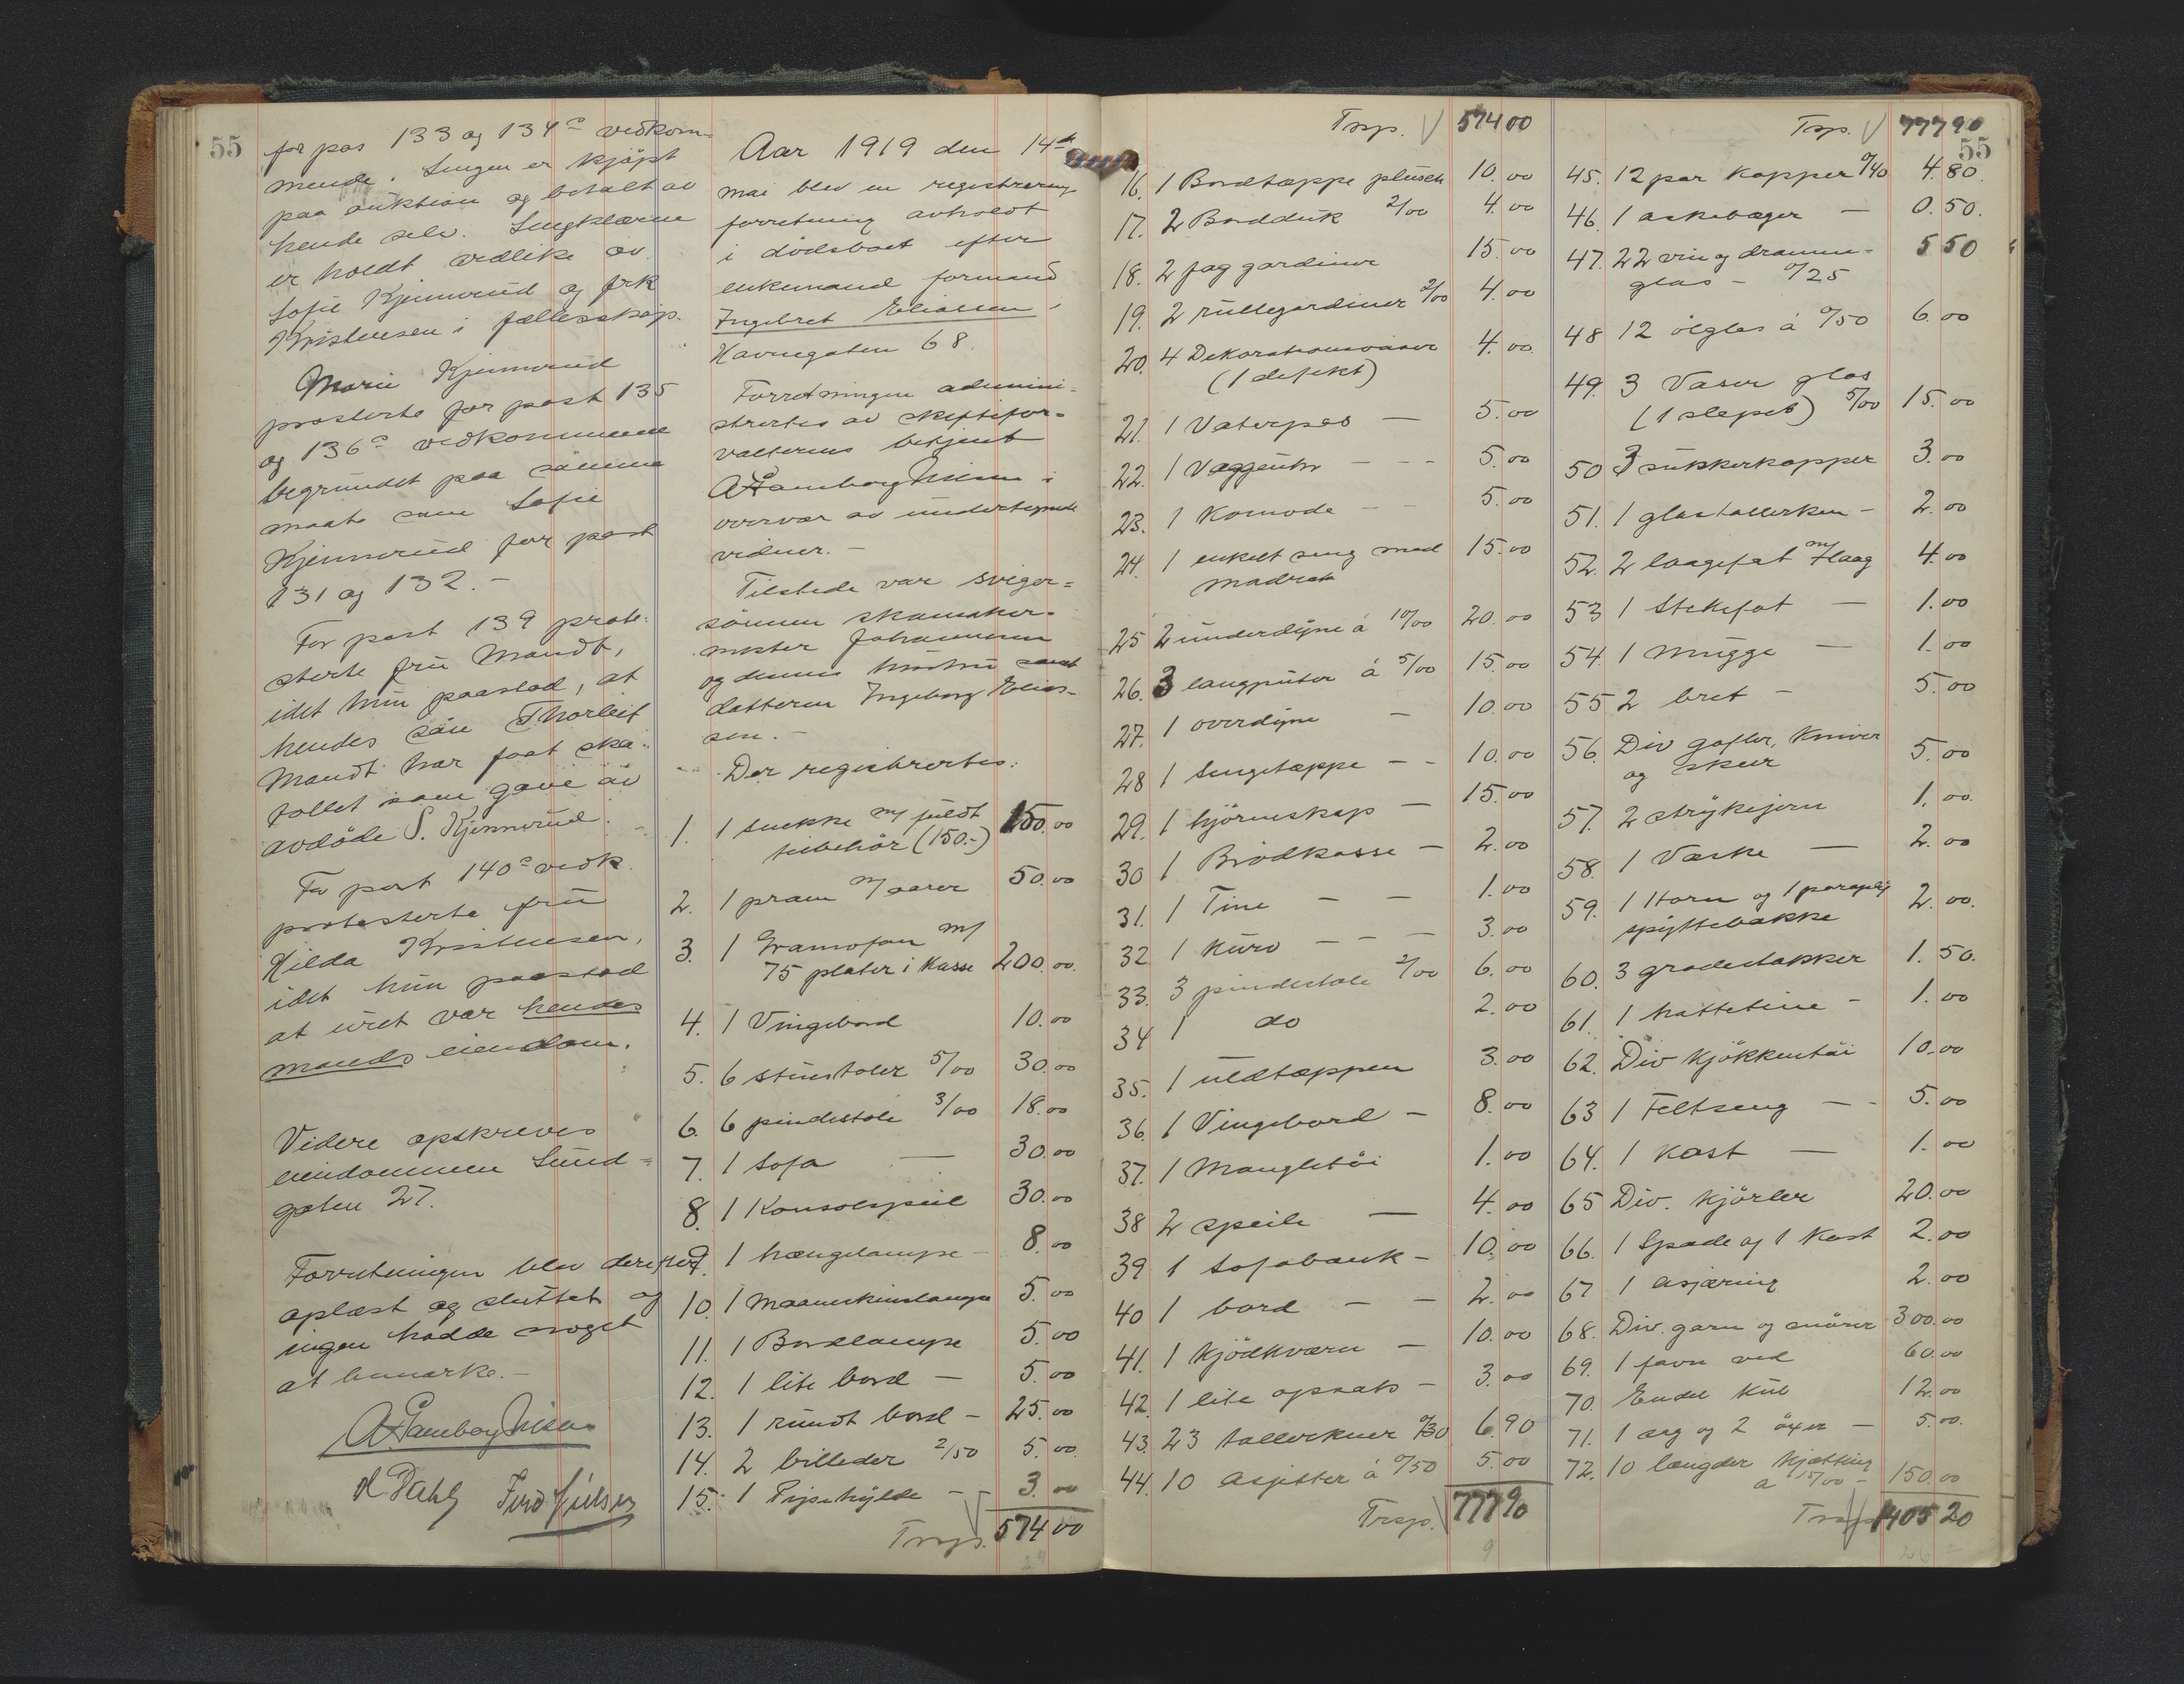 55
for pos 133 og 134 vedkom-
mende. Sengen er kjöpt
paa auktion og betalt av
hende selv. Sengklærne
er holdt vedlike av
Sofie Kjennerud og frk
Kristensen i fællesskap.
Marie Kjennerud
protesterte for post 135
og 136 vedkommende
begrundet paa samme
maate som Sofie
Kjennerud for post
131 og 132.-
For post 139 prote-
sterte fru Mandt,
idet hun paastod, at
hendes sön Thorleif
Mandt har faat ska-
tollet som gave av
avdöde S. Kjennerud.
For post 140 vedk.
protesterte fru
Hilda Kristensen,
idet hun paastod
at uret var hendes
mands eiendom.
Videre opskreves
eiendommen Sund-
gaten 27.
Forretningen blev derefter
oplæst og sluttet og
ingen hadde noget
at bemærke.-
A. Tamborg Nilsen
H Dahl
Aar 1919 den 14de
mai blev en registrerings
forretning avholdt
i dödsboet efter
enkemand formand
Ingebret Eliassen,
Havnegaten 68.
Forretningen admini-
strertes av skiftefor-
valterens betjent
A. Tamborg Nilsen i
overvær av undertegnede
vidner.-
Tilstede var sviger-
sönnen skomaker-
mester Johannesen
og dennes hustru samt
datteren Ingeborg Elias-
sen.-
Der registrertes:
1. 1 snekke m/ fuldt
tilbehör (150.-) 150.00
2. 1 pram m/ aarer 50.00
3. 1 Gramofon m/
75 plater i Kasse 200.00.
4. 1 Vingebord 10.00
5. 6 stuestoler 5/00 30.00
6. 6 pindestole 3/00 18.00
7. 1 Sofa — 30.00
8. 1 Konsolspeil 30.00
9. 1 hængelampe - 8.00
10. 1 Maaneskinslampe 5.00
11. 1 Bordlampe 5.00
12. 1 lite bord — 5.00
13. 1 rundt bord - 25.00
14. 2 billeder 2/50 5.00.
15. 1 Pipehylde — 3.00
Trsp. 574 00
Trsp. 574 00
16. 1 Bordtæppe plusch 10.00
17. 2 Bordduk 2/00 4.00
18. 2 fag gardiner 15.00
19. 2 rullegardiner 2/00 4.00
20. 4 Dekorationsvaser 4.00.
(1 defekt)
21. 1 Vaterpas — 5.00
22. 1 Væggeuhr - - - 5.00
23. 1 Komode - - 5.00
24. 1 enkelt seng med 15.00
madrats
25 2 underdyne à 10/00 20.00
26. 3 langputer à 5/00 15.00
27. 1 overdyne — 10.00
28 1 Sengetæppe - - 10.00
29. 1 hjörneskap — 15.00
30 1 Brödkasse - 2.00
31. 1 Tine - - 1.00
32 1 Kurv - - - 3.00
33. 3 pindestole 2/00 6.00
34 1 do 2.00
35. 1 uldtæppen 3.00
36. 1 Vingebord - 8.00
37. 1 Mangletöi 1.00
38 2 speile — 4.00
39 1 Sofabænk - 10.00
40 1 bord - - 2.00
41. 1 Kjödkværn - 10.00
42. 1 lite opsats - 3.00
43. 23 tallerkner 0/30 6.90
44. 10 asjetter à 0/50 5.00
Trsp. 777 90
Trsp. 777 90
55
45. 12 par Kopper 0/40 4.80.
46. 1 askebæger — 0.50.
47. 22 vin og dramme-
glas - 0/25 5 50
48 12 ölglas à 0/50 6.00
49. 3 Vaser glas
(1 slepet) 5/00 15.00
50 3 sukkerkopper 3.00
51. 1 glastallerken - 2.00
52. 2 laagefat m/ laag 4.00
53 1 Stekefat — 1.00
54. 1 mugge — 1.00
55 2 bret - 5.00
56. Div gafler, Kniver
og skeer 5.00
57. 2 strykejern 1.00.
58. 1 Væske — 2.00
59. 1 Horn og 1 paraply
spyttebakke 2.00.
60. 3 grødestakker 1.50.
61. 1 hattetine - 1.00
62. Div Kjökkentöi 10.00
63 1 Feltseng - - 5.00
64. 1 Kost — 1.00
65 Div. Kjörler 20.00
66. 1 Spade og 1 Kost 2.00
67 1 asjæring 2.00
68. Div. garn og snörer 300.00
69. 1 favn ved 60.00
70. Endel Kul 12.00
71. 1 sag og 2 öxer — 5.00.
72. 10 længder Kjætting
a 15/00 - 150.00
Trsp 1405 20